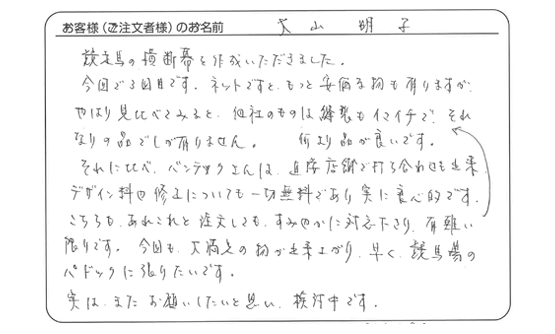 お客様（ご注文者様）のお名前 大山 明子
競走馬の横断幕を作成いただきました。
今回で3回目です。ネットですと、もっと安価な物も有りますが、
やはり見比べてみると、他社のものは縫製もイマイチで、それ
なりの品でしか有りません。 何より品が良いです。
それに比べ、バンテックさんは、直接店舗で打ち合わせも出来、
デザイン料や修正についても一切無料であり実に良心的です。
こちらも、あれこれと注文しても、すみやかに対応下さり、有難い
限りです。今回も、大満足の物が出来上がり、早く、競馬場の
パドックに張りたいです。
実は、またお願いしたいと思い、検討中です。